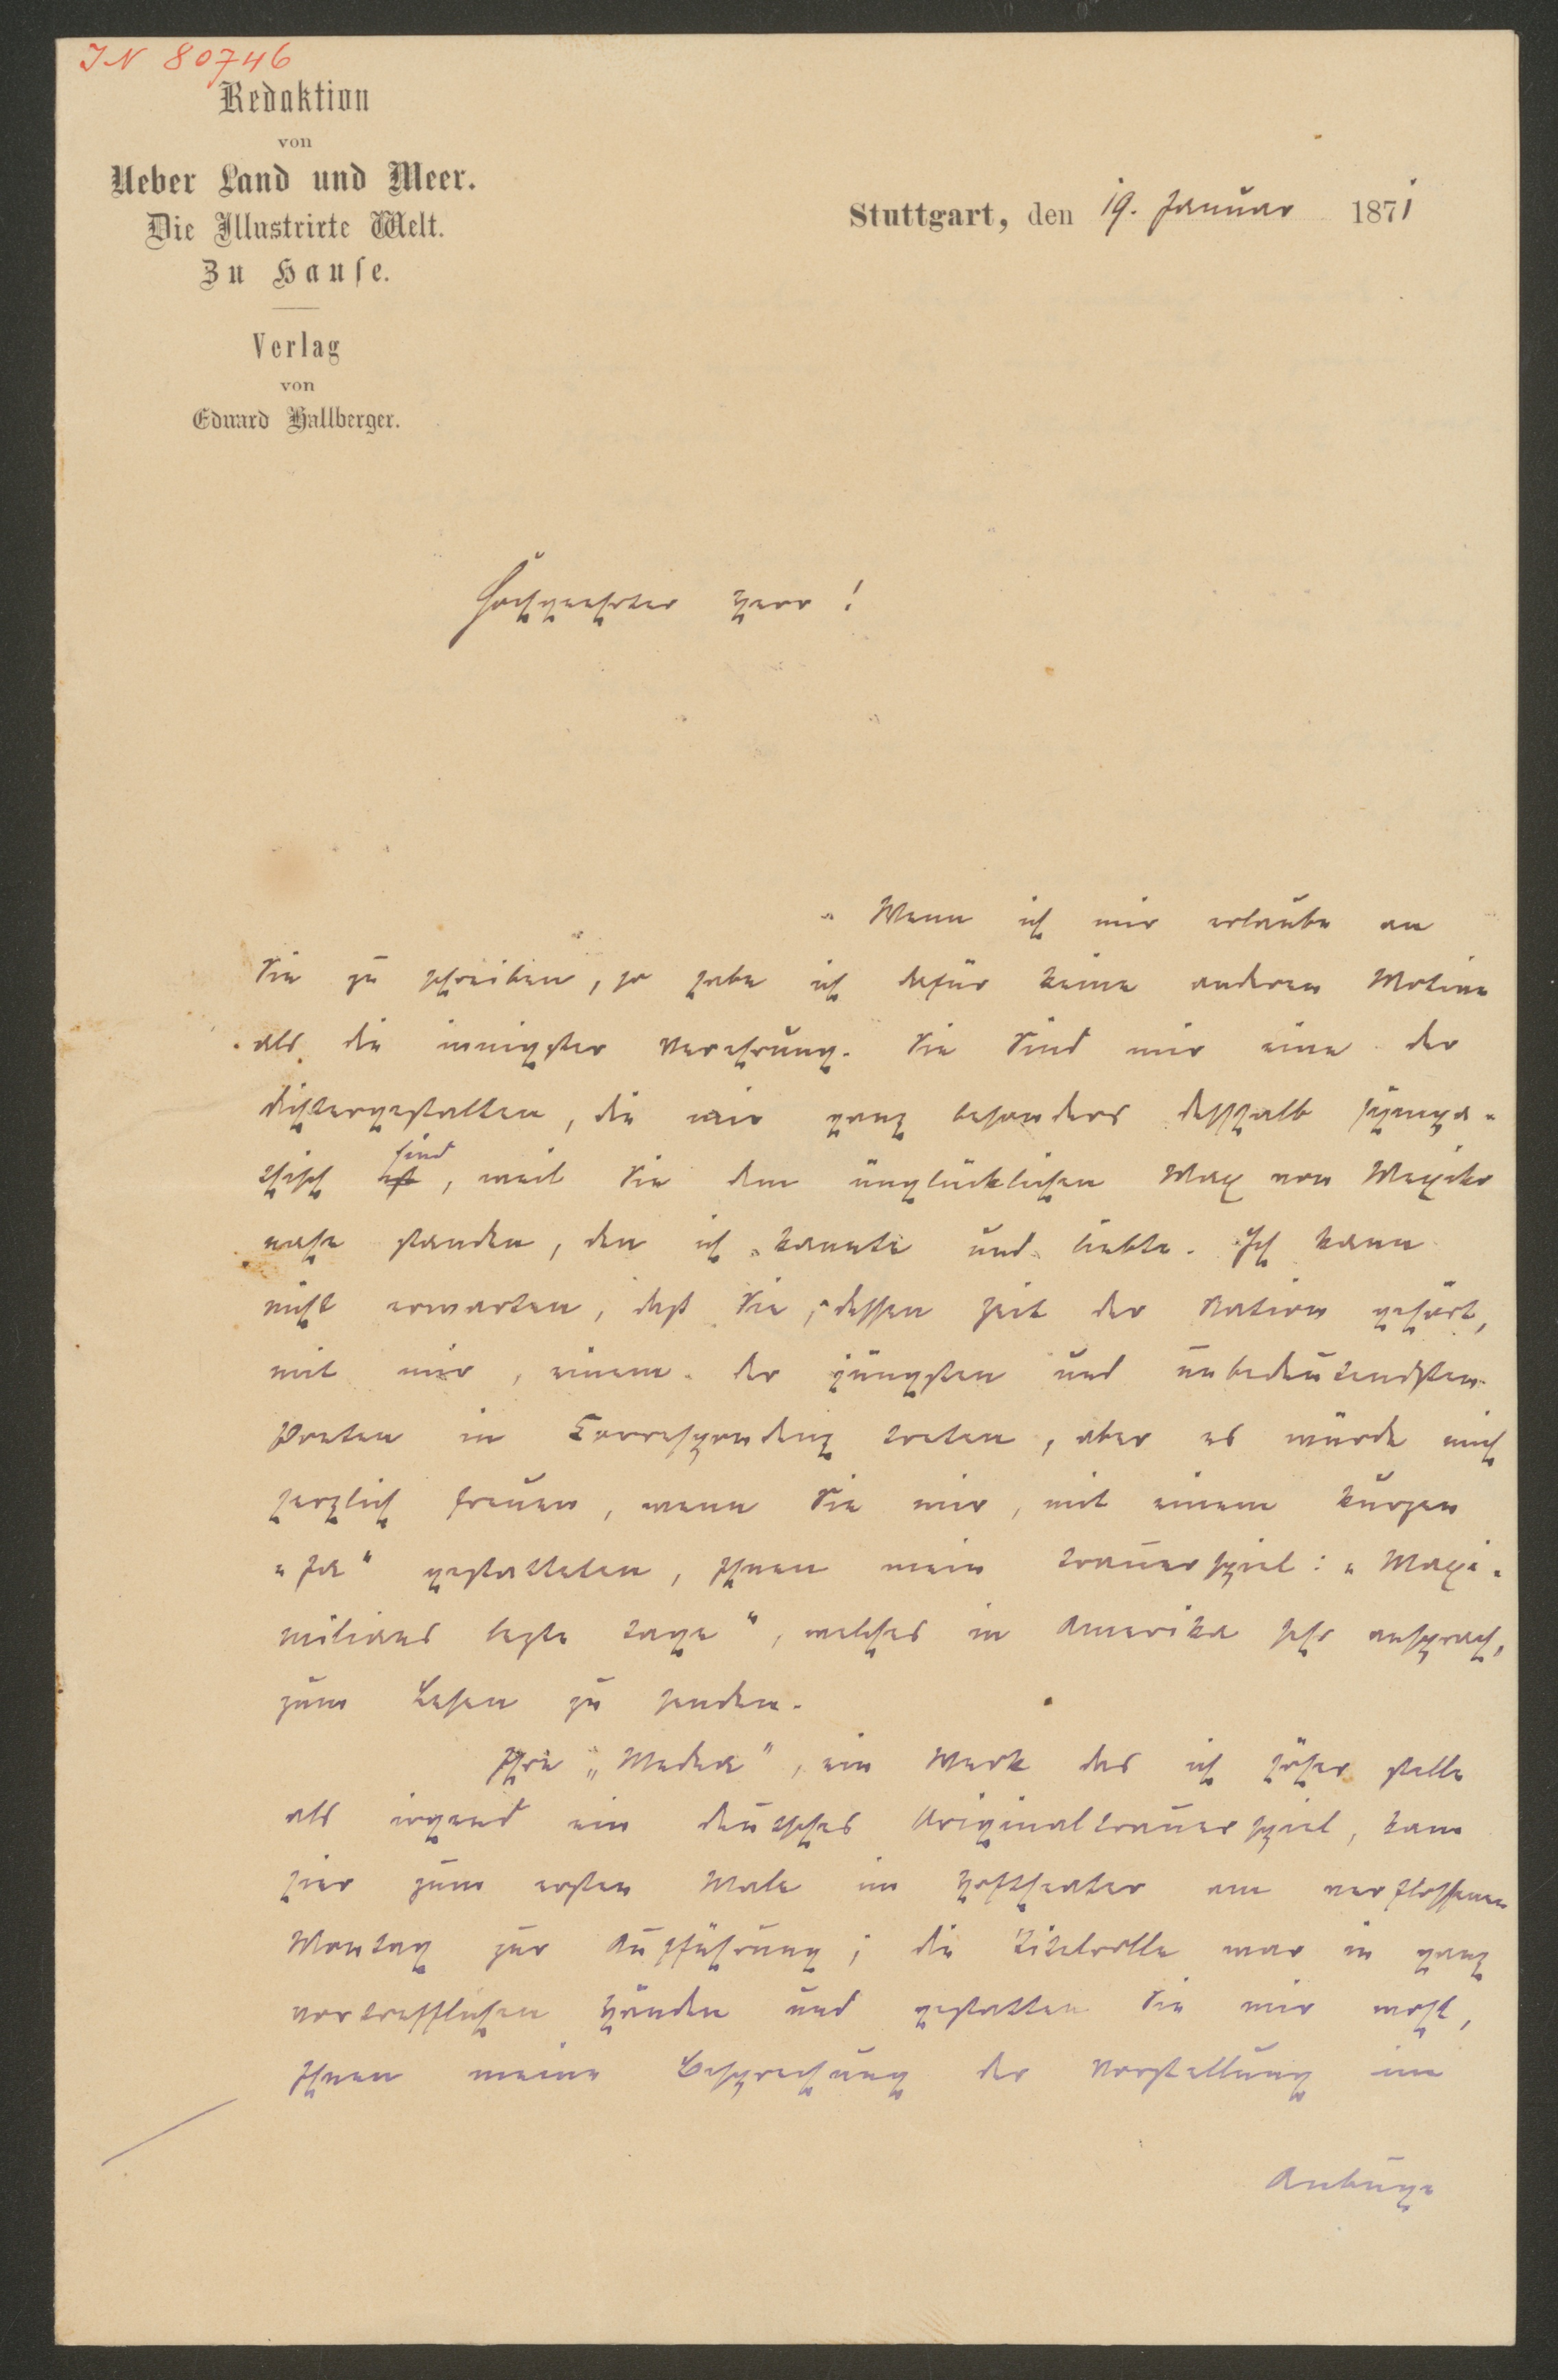 IN 80746
Redaktion
von
Ueber Land und Meer.
Die Illustrirte Welt.
Zu Hause.
Verlag
von
Eduard Hallberger.
Stuttgart, den 19. Januar 1871
Hochgeehrter Herr!
Wenn ich mir erlaube an
Sie zu schreiben, so habe ich dafür keine anderen Motive
als die innigster Verehrung. Sie Sind mir eine der
Dichtergestalten, die mir ganz besonders desshalb sympa-
thisch ist sind, weil Sie dem unglücklichen Max von Mexiko
nahe standen, den ich kannte und liebte. Ich kann
nicht erwarten, daß Sie, dessen Zeit der Nation gehört,
mit mir, einem der jüngsten und unbedeutendsten
Poeten in Correspondenz treten, aber es würde mich
herzlich freuen, wenn Sie mir, mit einem kurzen
„Ja" gestatteten, Ihnen mein Trauerspiel: „Maxi-
milians lezte Tage", welches in Amerika sehr ansprach,
zum Lesen zu senden.
Ihre „Medea", ein Werk das ich höher stelle
als irgend ein deutsches Originaltrauerspiel, kam
hier zum ersten Male im Hoftheater am verflossenen
Montag zur Aufführung; die Titelrolle war in ganz
vortrefflichen Händen und gestatten Sie mir wohl,
Ihnen meine Besprechung der Vorstellung im
Anbuge